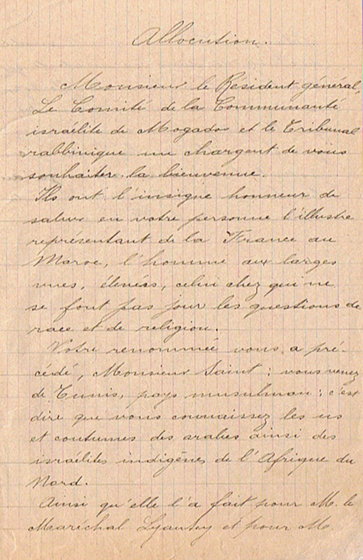 Allocution.
Monsieur le Résident général,
Le Comité de la Communauté
israélite de Mogador et le Tribunal
rabbinique me chargent de vous
souhaiter la bienvenue.
Ils ont l'insigne honneur de
saluer en votre personne l'illustre
représentant de la France au
Maroc, l'homme aux larges
vues, élevées, celui chez qui ne
se font pas jour les questions de
race et de religion.
Votre renommée vous a pré-
cédé, Monsieur Saint ; vous venez
de Tunis, pays musulman ; c'est
dire que vous connaissez les us
et coutumes des arabes ainsi des
israélites indigènes de l'Afrique du
Nord.
Ainsi qu'elle l'a fait pour M. le
Maréchal Lyautey et pour M.